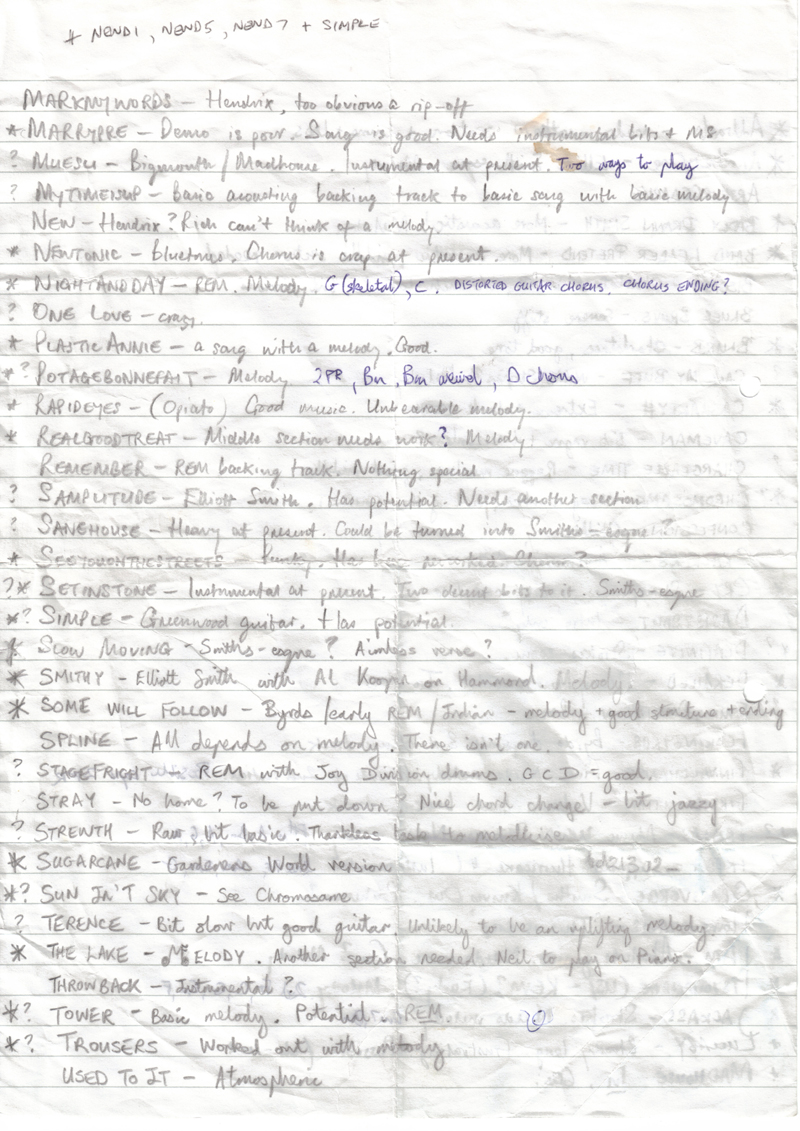 * NEND1, NEND5, NEND7 + SIMPLE
MARKMYWORDS – Hendrix, too obvious a rip-off
* MARRYPRE – Demo is poor. Song is good. Needs instrumental bits + MS
? MUESLI – Bigmouth / Madhouse. Instumental at present. Two ways to play
? MYTIMEISUP – Basic acousting backing track to basic song with basic melody
NEW – Hendrix? Rich can't think of a melody
* NEWTONIC – bluetones. Chorus is crap at present.
* NIGHTANDDAY – REM. Melody. G (skeletal), C. DISTORTED GUITAR CHORUS. CHORUS ENDING?
? ONE LOVE – crazy.
* PLASTIC ANNIE – a song with a melody. Good.
*? POTAGEBONNEFAIT – Melody 2PR, Bm, Bm weird, D chorus
* RAPIDEYES – (Opiato) Good music. Unbearable melody.
* REALGOODTREAT – Middle section needs work? Melody
REMEMBER – REM backing track. Nothing special
? SAMPLITUDE – Elliott Smith. Has potential. Needs another section
? SANEHOUSE – Heavy at present. Could be turned into Smiths-esque?
* SEEYOUONTHESTREETS – Funky. Has been Chorus?
?* SETINSTONE – Instrumental at present. Two decent bits to it. Smiths-esque
*? SIMPLE – Greenwood guitar. Has potential.
* SLOW MOVING – Smiths-esque? Aimless verse?
* SMITHY – Elliott Smith with Al Kooper on Hammond. Melody.
* SOME WILL FOLLOW – Byrds / early REM / Indian – melody + good structure + ending
SPLINE – All depends on melody. There isn't one.
? STAGEFRIGHT – REM with Joy Division drums. G C D = good.
STRAY – No home? To be put down? Nice chord change! – bit jazzy
? STREWTH – Raw, bit basic. Thankless task to melodicise
* SUGARCANE – Gardeners World version
*? SUN IN'T SKY – See Chromosome
? TERENCE – Bit slow but good guitar. Unlikely to be an uplifting melody.
* THE LAKE – MELODY. Another section needed. Neil to play on Piano.
THROWBACK – Instrumental?
*? TOWER – Basic melody. Potential. REM.
*? TROUSERS – Worked out with melody
USED TO IT – Atmospheric